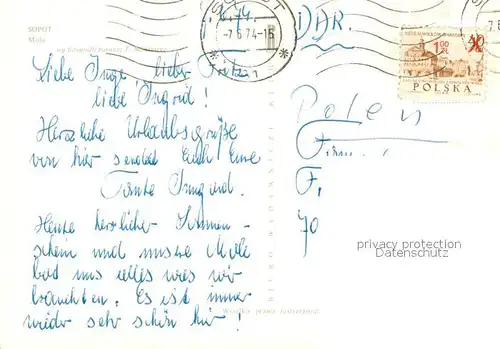 SOPOT
Molo
SOPOT
-7.6.74-15
DDR.
1,00
ZŁ
40
POLSKA
Liebe Inge, lieber
liebe Ingrid!
Herzliche Urlaubsgrüße
von hier sendet Euch Eure
Tante Irmgard.
Heute herrlicher Sonnen-
schein und unsere Mole
bot uns alles was wir
brauchten. Es ist immer
wieder sehr schön hier!
Polen
Firma
F.
70
BIURO WYDAWNICZE
Wszelkie prawa zastrzeżone
privacy protection
Datenschutz